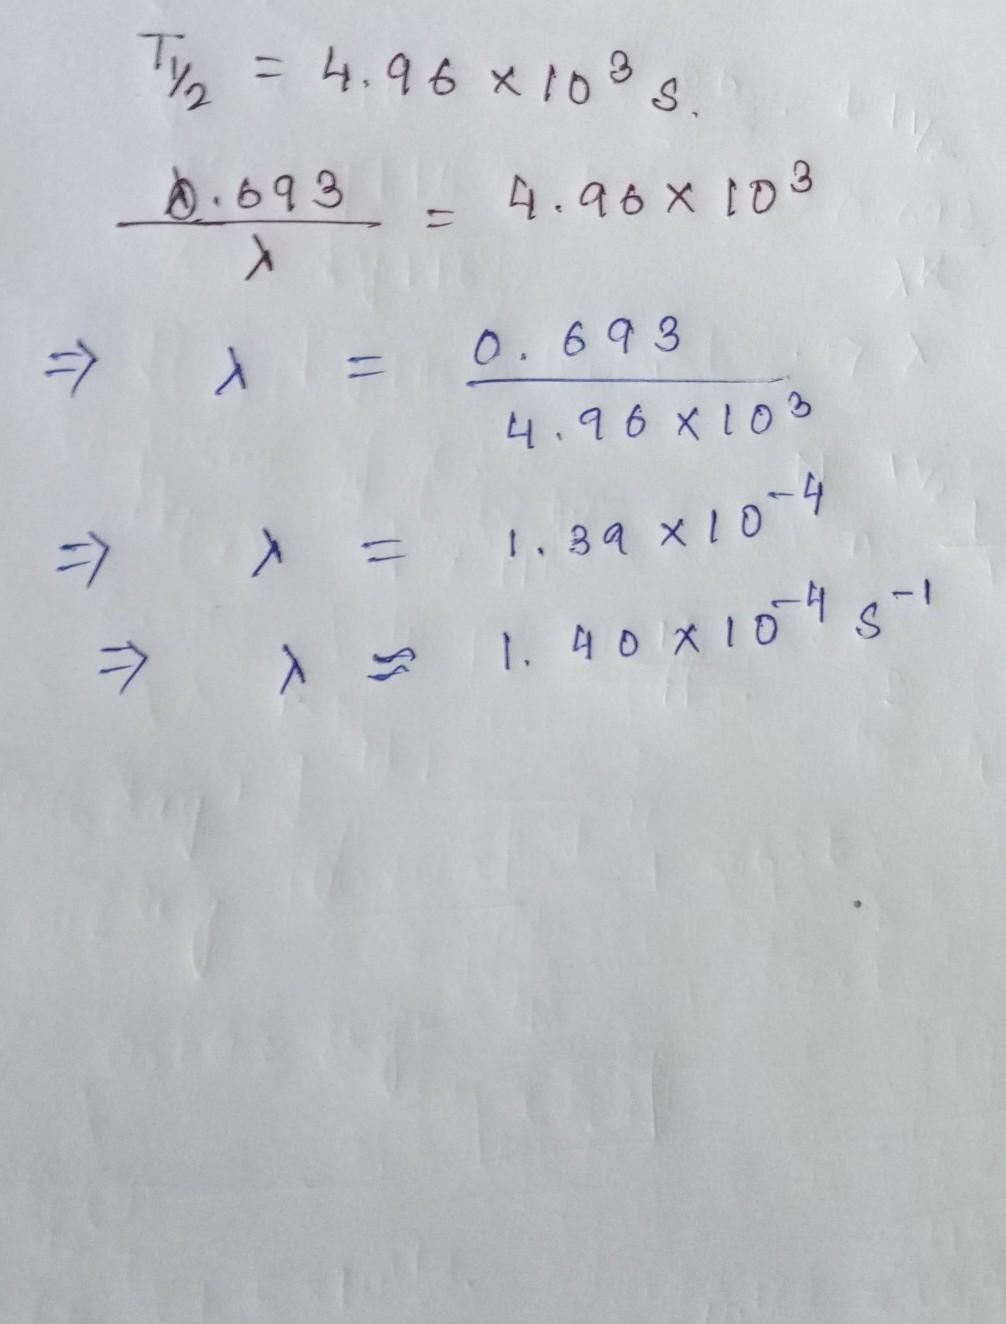 T½ = 4.96 × 10³ s.
0.693 / λ = 4.96 × 10³
⇒ λ = 0.693 / 4.96 × 10³
⇒ λ = 1.39 × 10⁻⁴
⇒ λ ≈ 1.40 × 10⁻⁴ s⁻¹